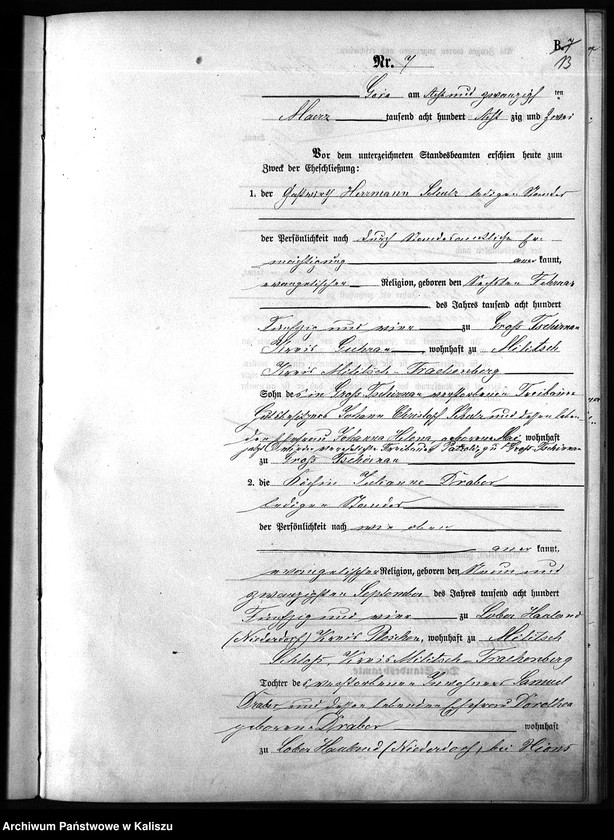 B. 7
13
Nr. 7
am Acht und zwanzig ten
Maerz tausend acht hundert Acht zig und Zwei
Vor dem unterzeichneten Standesbeamten erschien heute zum
Zweck der Eheschließung:
1. der Gastwirth Herrmann Scholz ledigen Standes
der Persönlichkeit nach durch standesamtliche Er-
mächtigung aner kannt,
evangelischer Religion, geboren den Sechsten Februar
des Jahres tausend acht hundert
Fünfzig und vier zu Groß Tschirnau
Kreis Guhrau, wohnhaft zu Militsch
Kreis Militsch-Trachenberg
Sohn des in Groß Tschirnau verstorbenen
Johann Christoph Scholz und dessen leben
den Ehefrau Johanna Helena, geborene wohnhaft
zu Groß Tschirnau
2. die Köchin Julianne Draber
ledigen Standes
der Persönlichkeit nach wie oben
aner kannt,
evangelischer Religion, geboren den Neun und
zwanzigsten September des Jahres tausend acht hundert
Fünfzig und vier zu Lober Hauland
(Niederdorf) Kreis, wohnhaft zu Militsch
Schloß, Kreis Militsch-Trachenberg
Tochter des verstorbenen Einwohners Samuel
Draber und dessen lebenden Ehefrau Dorothea
geborene Draber wohnhaft
zu Lober Hauland (Niederdorf) bei Xions
Archiwum Państwowe w Kaliszu